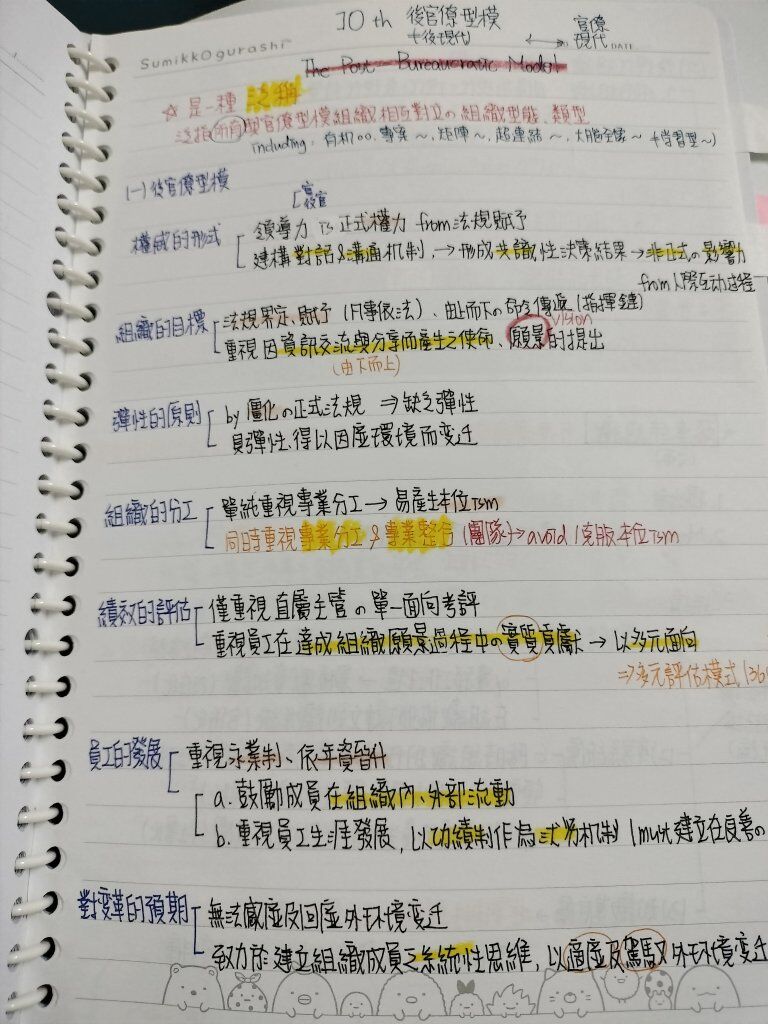 10th 後官僚型模 官僚
Sumikkogurashi 後現代 ↔ 現代 DATE
The Post-Bureaucratic Model
☆ 是一種 泛稱
泛指所有與官僚型模組織相互對立の組織型態、類型
including: 有机~、專案~、矩陣~、超連結~、大腦~ 學習型~)
(一)後官僚型模 [官 後官
權威的形式 領導力 is 正式權力 from 法規賦予
建構對話&溝通机制, → 形成共識性決策結果 → 非正式の影響力
from 人際互动過程
組織的目標 法規界定、賦予 (凡事依法)、由上而下の命令傳遞 (指揮鏈)
重視因資訊交流與分享而產生之使命、願景的提出 vision
(由下而上)
彈性的原則 by 僵化の正式法規 → 缺乏彈性
具彈性、得以因應環境而変迁
組織的分工 單純重視專業分工 → 易產生本位ism
同時重視專業分工 & 專業整合 (團隊) → avoid / 克服本位ism
績效的評估 僅重視直屬主管の單一面向考評
重視員工在達成組織願景過程中の實質貢獻 → 以多元面向
⇒多元評估模式 (36
員工的發展 重視永業制、依年資晉升
a. 鼓勵成員在組織內、外部流動
b. 重視員工生涯發展, 以功績制作為机制 (must 建立在良善の
對変革的預期 無法感應及回應外环境変迁
致力於建立組織成員之系統性思維, 以適應及駕馭外环境変迁